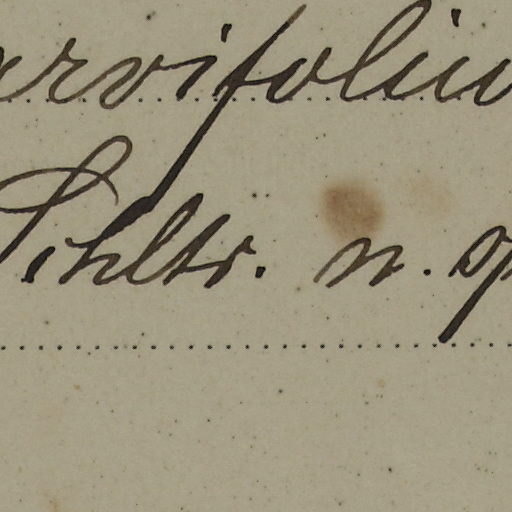 arvifoliu
Schltr. n. sp